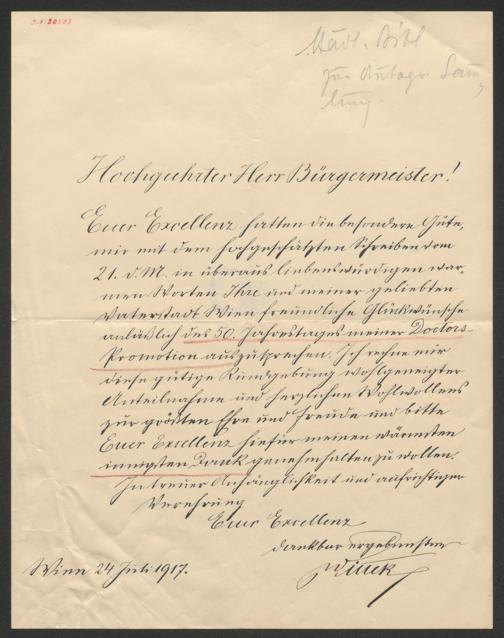 J.N. 50503
Städt. Bibl.
zur Autogr. Samm
lung.
Hochgeehrter Herr Bürgermeister!
Euer Excellenz hatten die besondere Güte,
mir mit dem hochgeschätzten Schreiben vom
21. d. M. in überaus liebenswürdigen war-
men Worten Ihre und meiner geliebten
Vaterstadt Wien freundliche Glückwünsche
anläßlich des 50. Jahrestages meiner Doctors-
Promotion auszusprechen. Ich rechne mir
diese gütige Kundgebung wohlgeneigter
Anteilnahme und herzlichen Wohlwollens
zur größten Ehre und Freude und bitte
Euer Excellenz hiefür meinen wärmsten
innigsten Dank genehmhalten zu wollen.
In treuer Anhänglichkeit und aufrichtiger
Verehrung
Euer Excellenz
dankbar ergebenster
Wien 24 Juli 1917.